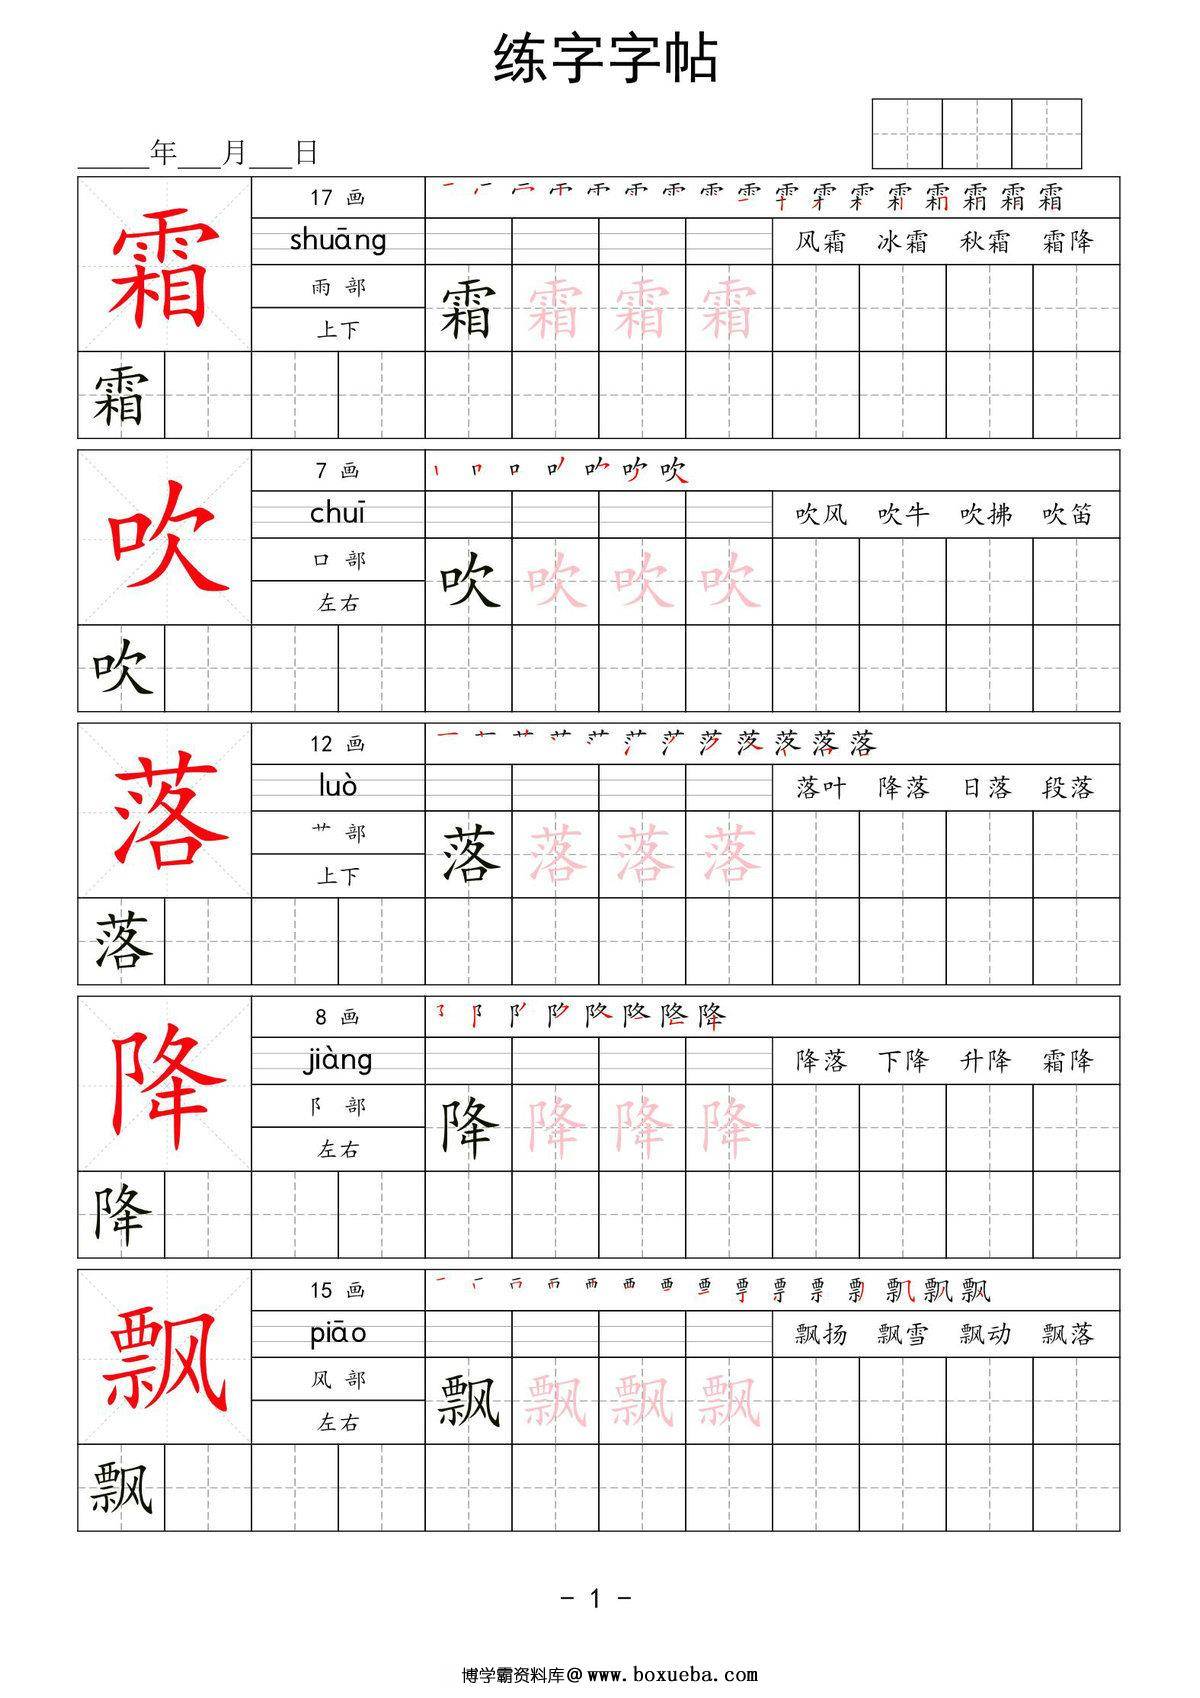 练字字帖
年 月 日
17 画
shuāng
风霜 冰霜 秋霜 霜降
霜
雨 部
霜 霜 霜 霜
上下
霜
7 画
chuī
吹风 吹牛 吹拂 吹笛
吹
口 部
吹 吹 吹 吹
左右
吹
12 画
luò
落叶 降落 日落 段落
落
艹 部
落 落 落 落
上下
落
8 画
jiàng
降落 下降 升降 霜降
降
阝 部
降 降 降 降
左右
降
15 画
piāo
飘扬 飘雪 飘动 飘落
飘
风 部
飘 飘 飘 飘
左右
飘
- 1 -
博学霸资料库@www.boxueba.com